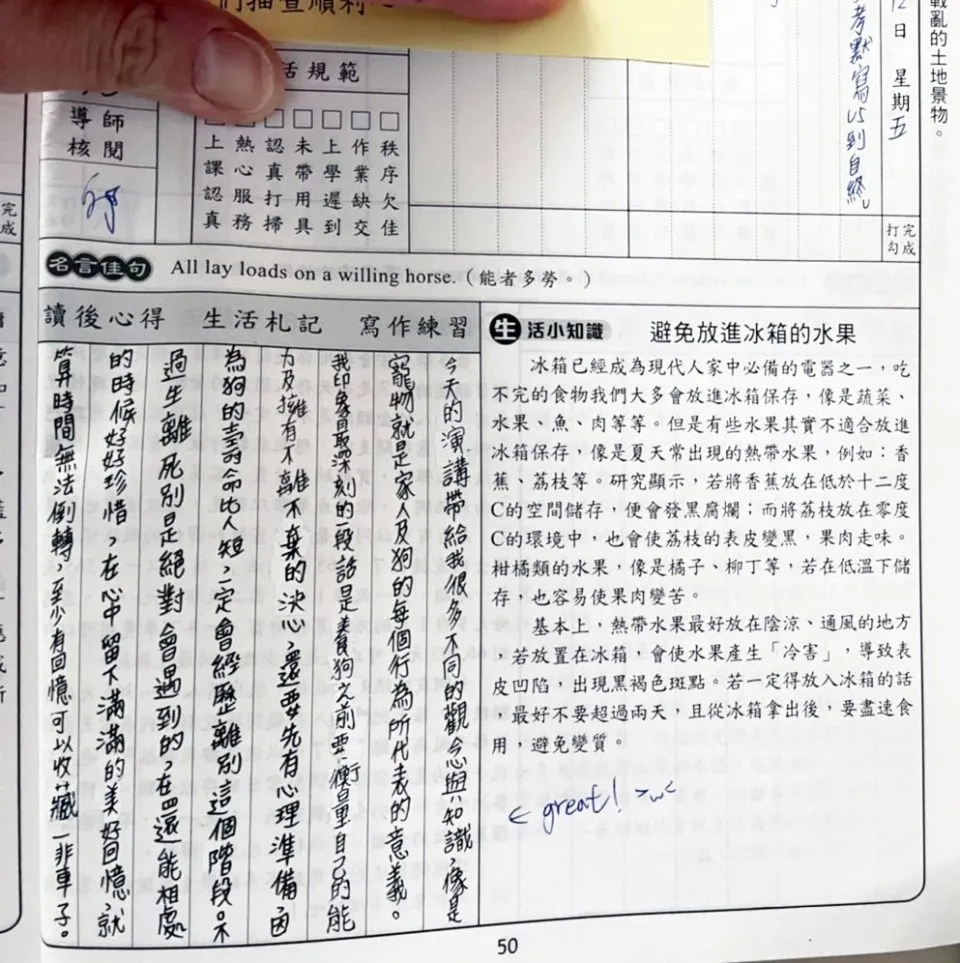 們抽查順利
戰亂的土地景物。
12日 星期五
考默寫U5到自終
完成
打勾
活規範
導師
核閱
□□□□□□□
上課認真
熱心服務
認真打掃
未帶用具
上學遲到
作業缺交
秩序欠佳
完成
名言佳句 All lay loads on a willing horse.(能者多勞。)
讀後心得 生活札記 寫作練習
今天的演講帶給我很多不同的觀念與知識,像是
寵物就是家人及狗的每個行為所代表的意義。
我印象最深刻的一段話是養狗之前要衡量自己的能
力及擁有不離不棄的決心,還要先有心理準備,因
為狗的壽命比人短,一定會經歷離別這個階段。不
過生離死別是絕對會遇到的,在還能相處
的時候好好珍惜,在心中留下滿滿的美好回憶,就
算時間無法倒轉,至少有回憶可以收藏一非車子。
生活小知識 避免放進冰箱的水果
冰箱已經成為現代人家中必備的電器之一,吃
不完的食物我們大多會放進冰箱保存,像是蔬菜、
水果、魚、肉等等。但是有些水果其實不適合放進
冰箱保存,像是夏天常出現的熱帶水果,例如:香
蕉、荔枝等。研究顯示,若將香蕉放在低於十二度
C的空間儲存,便會發黑腐爛;而將荔枝放在零度
C的環境中,也會使荔枝的表皮變黑,果肉走味。
柑橘類的水果,像是橘子、柳丁等,若在低溫下儲
存,也容易使果肉變苦。
基本上,熱帶水果最好放在陰涼、通風的地方
,若放置在冰箱,會使水果產生「冷害」,導致表
皮凹陷,出現黑褐色斑點。若一定得放入冰箱的話
,最好不要超過兩天,且從冰箱拿出後,要盡速食
用,避免變質。
← great! >w<
50